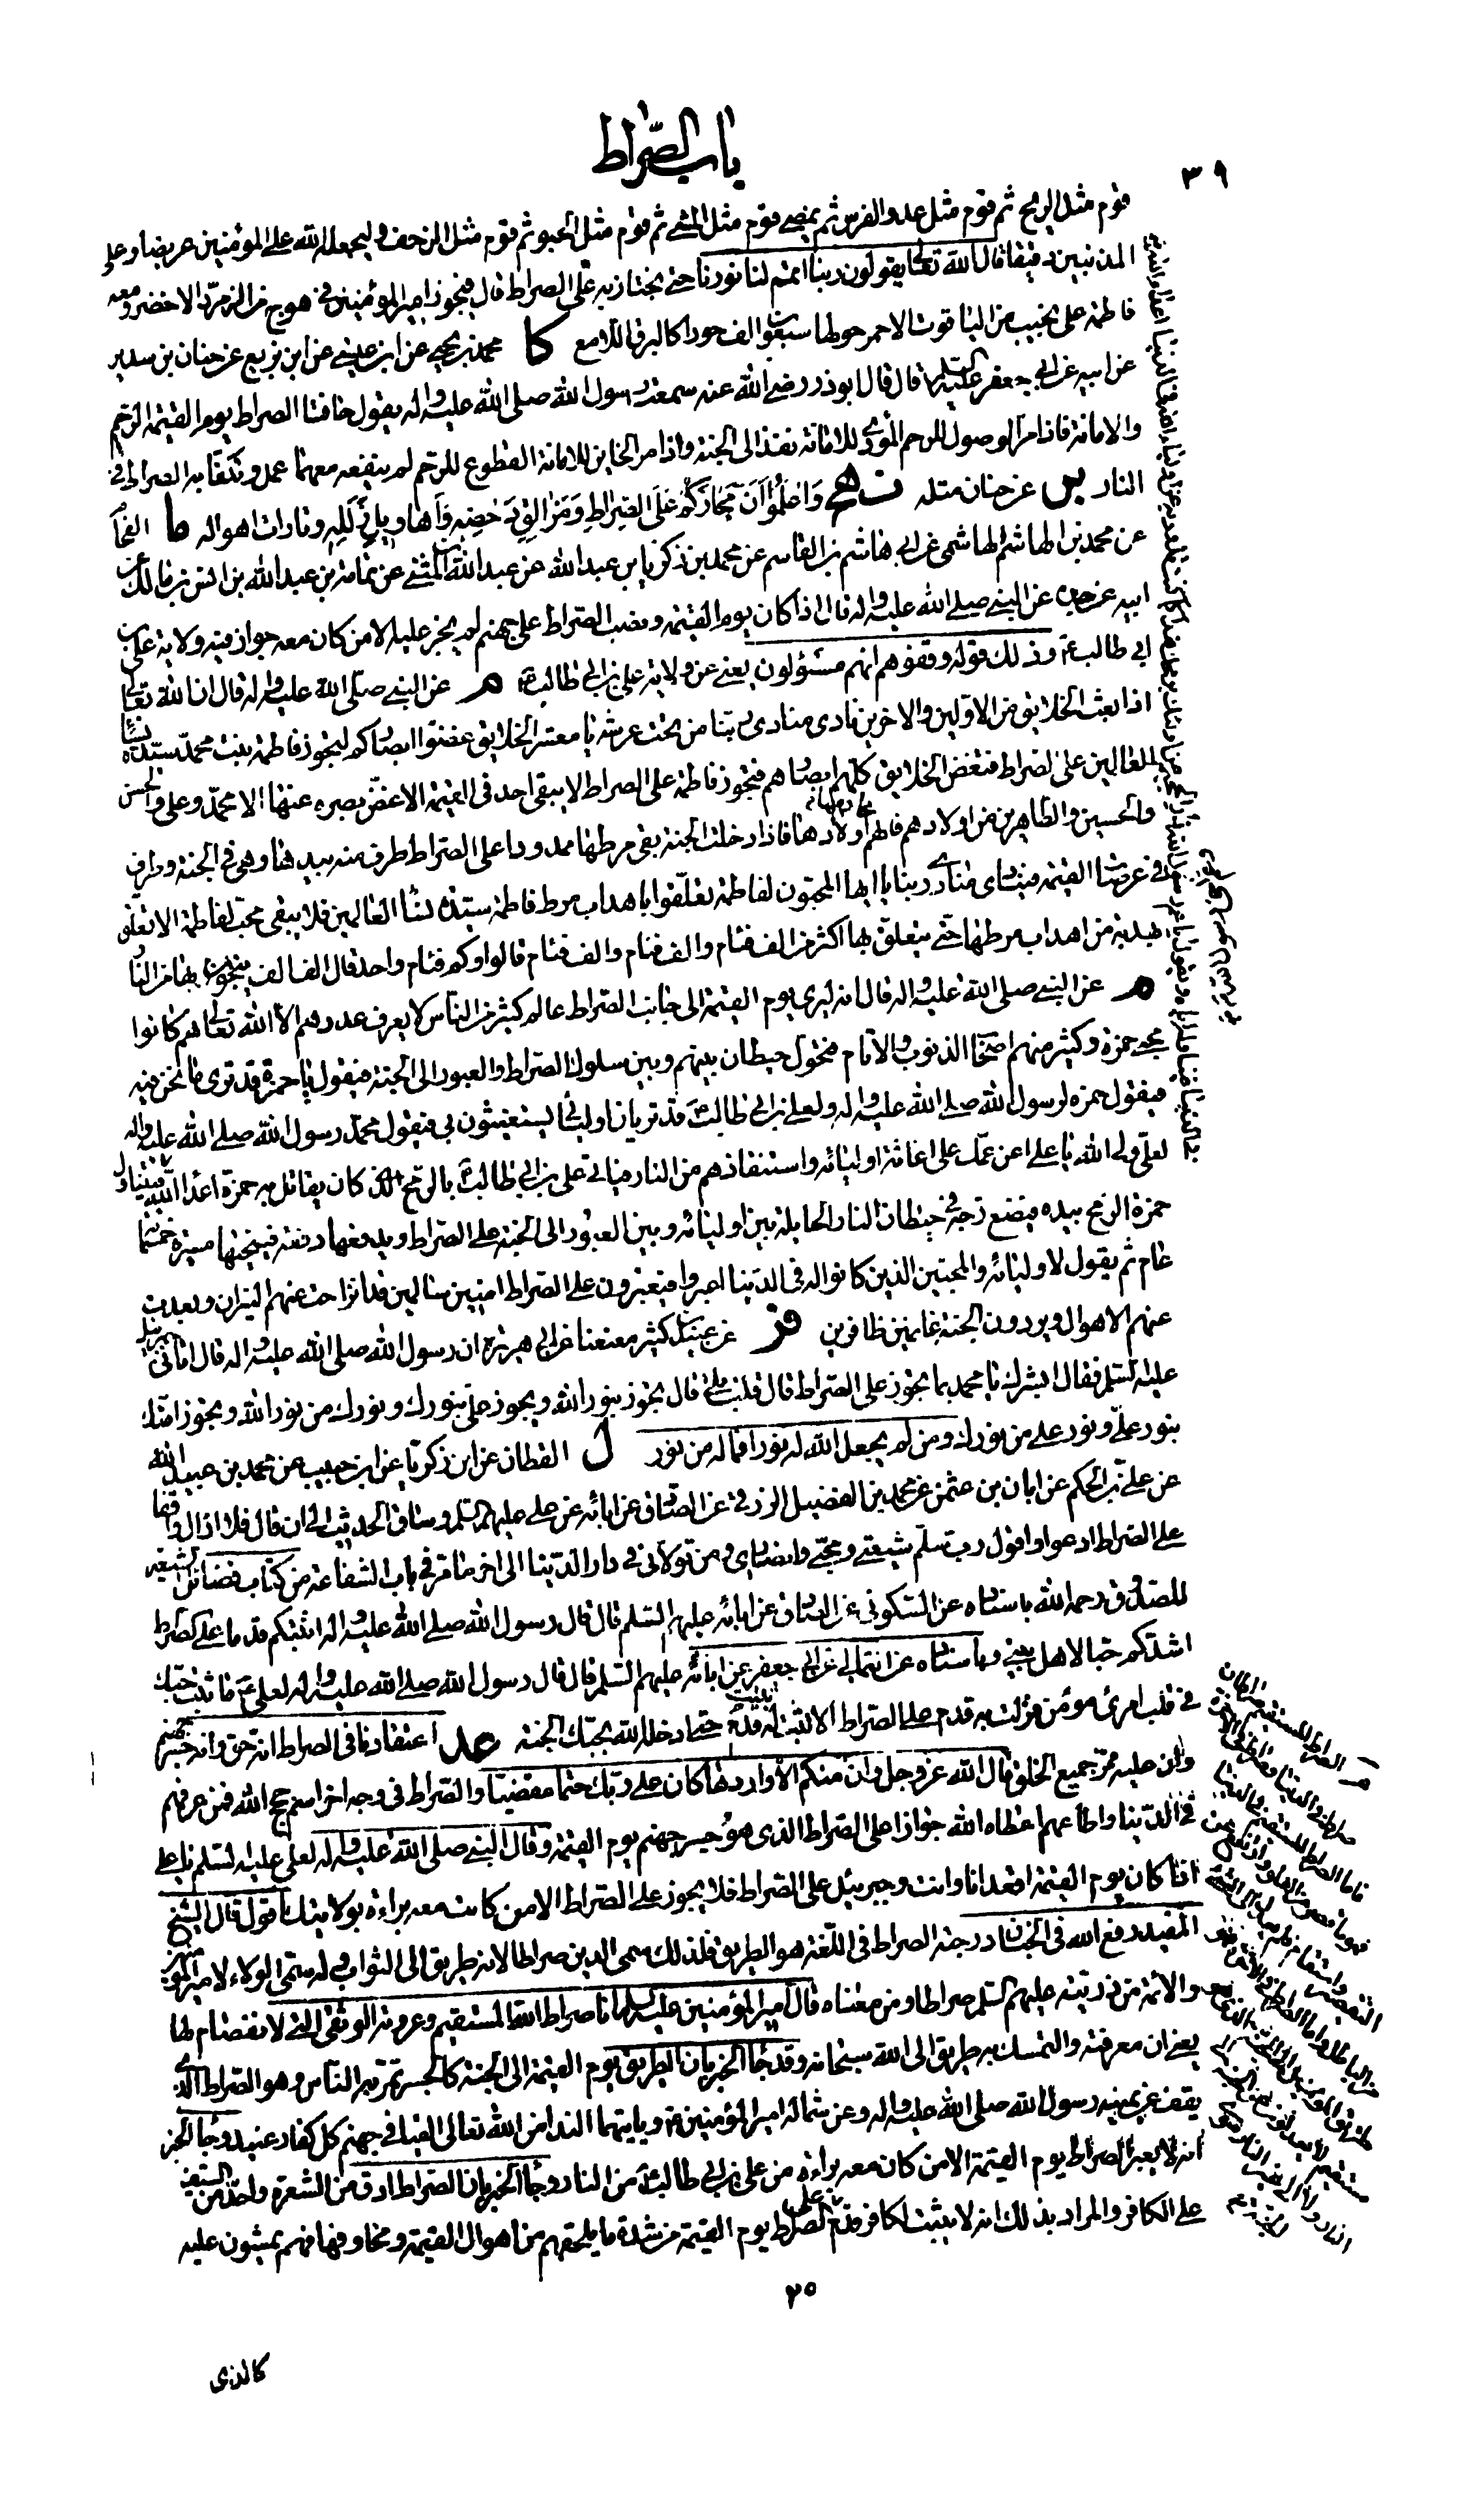 باب الصّراط
٣٩
قوم مثل الريح ثم قوم مثل عدو الفرس ثم يمضى قوم مثل المشى ثم قوم مثل الحبو ثم قوم مثل الزحف وليجعله الله على المؤمنين عريضا وعلى
المذنبين دقيقا قال الله تعالى يقولون ربنا اتمم لنا نورنا حتى نجتاز به على الصراط قال فيجوز امير المؤمنين فى هودج من الزمرد الاخضر ومعه
فاطمة على نجيب من الياقوت الاحمر حولها سبعون الف حوراء كالبرق اللامع كا محمد بن يحيى عن ابن عيسى عن ابن بزيع عن حنان بن سدير
عن ابيه عن ابى جعفر عليه السلم قال قال ابوذر رضى الله عنه سمعت رسول الله صلى الله عليه واله يقول حافتا الصراط يوم القيمة الرحم
والامانة فاذا مر الوصول للرحم المؤدى للامانة نفذ الى الجنة واذا مر الخاين للامانة القطوع للرحم لم ينفعه معهما عمل وتكفأ به الصراط فى
النار ين عن حنان مثله نهج وَاعْلَمُوا اَنَّ مَجَازَكُمْ عَلَى الصِّرَاطِ وَمَزَالِقِ دَحْضِهِ وَاَهَاوِيلِ زَلَلِهِ وتارات اهواله ما الفحام
عن محمد بن الهاشم الهاشمى عن ابى هاشم بن القاسم عن محمد بن زكريا بن عبد الله عن عبد الله بن المثنى عن ثمامة بن عبد الله بن انس بن مالك عن
ابيه عن جده عن النبى صلى الله عليه واله قال اذا كان يوم القيمة ونصب الصراط على جهنم لم يجز عليه الا من كان معه جواز فيه ولاية على بن
ابى طالب ع وذلك قوله وقفوهم انهم مسئولون يعنى عن ولاية على بن ابى طالب ع م عن النبى صلى الله عليه واله قال ان الله تعالى
اذا بعث الخلايق من الاولين والاخرين نادى منادى ربنا من تحت عرشه يا معشر الخلايق غضوا ابصاركم لتجوز فاطمة بنت محمد سيدة نساء
العالمين على الصراط فتغض الخلايق كلهم ابصارهم فتجوز فاطمة على الصراط لا يبقى احد فى القيمة الا غض بصره عنها الا محمد وعلى والحسن
والحسين والطاهرين من اولادهم فانهم اولادها فاذا دخلت الجنة بقى مرطها ممدودا على الصراط طرف منه بيدها وهى فى الجنة وطرف
فى عرصات القيمة فينادى منادى ربنا يا ايها المحبون لفاطمة تعلقوا باهداب مرط فاطمة سيدة نساء العالمين فلا يبقى محب لفاطمة الا تعلق
بهدبة من اهداب مرطها حتى يتعلق بها اكثر من الف فئام والف فئام والف فئام قالوا وكم فئام واحد قال الف الف ينجون بها من النار
م عن النبى صلى الله عليه واله قال انه ليرى يوم القيمة الى جانب الصراط عالم كثير من الناس لا يعرف عددهم الا الله تعالى هم كانوا
محبى حمزة وكثير منهم اصحاب الذنوب والاثام فتحول حيطان بينهم وبين سلوك الصراط والعبور الى الجنة فيقولون يا حمزة قد ترى ما نحن فيه
فيقول حمزة لرسول الله صلى الله عليه واله ولعلى بن ابى طالب ع قد تريان اوليائى يستغيثون بى فيقول محمد رسول الله صلى الله عليه واله
لعلى ولى الله يا على اعن عمك على اغاثة اوليائه واستنقاذهم من النار فياتى على بن ابى طالب ع بالرمح الذى كان يقاتل به حمزة اعداء الله فيتناول
حمزة الرمح بيده فيضع زجه فى حيطان النار الحايلة بين اوليائه وبين العبور الى الجنة على الصراط ويدفعها دفعة فينحيها مسيرة خمسمائة
عام ثم يقول لاوليائه والمحبين الذين كانوا له فى الدنيا اعبروا فيعبرون على الصراط امنين سالمين قد انزاحت عنهم النيران وبعدت
عنهم الاهوال ويردون الجنة غانمين ظافرين فر عن عبيد بن كثير معنعنا عن ابى هريرة ان رسول الله صلى الله عليه واله قال اتانى جبرئيل
عليه السلم فقال ابشرك يا محمد بما تجوز على الصراط قال قلت بلى قال تجوز بنور الله ويجوز على بنورك ونورك من نور الله وتجوز امتك
بنور على ونور على من نورك ومن لم يجعل الله له نورا فما له من نور ل القطان عن ابن زكريا عن ابن حبيب عن محمد بن عبيد الله
عن على بن الحكم عن ابان بن عثمن عن محمد بن الفضيل الرزقى عن الصادق عن ابائه عن على عليهم السلم وساق الحديث الى ان قال فلا ازال واقفا
على الصراط ادعو واقول رب سلم شيعتى ومحبى وانصارى ومن تولانى فى دار الدنيا الى اخر ما مر فى باب الشفاعة من كتاب فضائل الشيعة
للصدوق رحمه الله باسناده عن السكونى عن الصادق عن ابائه عليهم السلم قال قال رسول الله صلى الله عليه واله اثبتكم قدما على الصراط
اشدكم حبا لاهل بيتى وباسناده عن الثمالى عن ابى جعفر عن ابائه عليهم السلم قال قال رسول الله صلى الله عليه واله لعلى ع ما ثبت حبك
فى قلب امرئ مؤمن فزلت به قدم على الصراط الا ثبتت له قدم حتى ادخله الله بحبك الجنة عد اعتقادنا فى الصراط انه حق وانه جسر جهنم
وان عليه ممر جميع الخلق قال الله عز وجل وان منكم الا واردها كان على ربك حتما مقضيا والصراط فى وجه اخر اسم حجج الله فمن عرفهم
فى الدنيا واطاعهم اعطاه الله جوازا على الصراط الذى هو جسر جهنم يوم القيمة وقال النبى صلى الله عليه واله لعلى عليه السلم يا على
اذا كان يوم القيمة اقعد انا وانت وجبرئيل على الصراط فلا يجوز على الصراط الا من كانت معه براءة بولايتك اقول قال الشيخ
المفيد رفع الله فى الجنان درجته الصراط فى اللغة هو الطريق فلذلك سمى الدين صراطا لانه طريق الى الثواب وله سمى الولاء لامير المؤمنين
والائمة من ذريته عليهم السلم صراطا ومن معناه قال امير المؤمنين عليه السلم انا صراط الله المستقيم وعروته الوثقى التى لا انفصام لها
يعنى ان معرفته والتمسك به طريق الى الله سبحانه وقد جاء الخبر بان الطريق يوم القيمة الى الجنة كالجسر تمر به الناس وهو الصراط الذى
يقف عن يمينه رسول الله صلى الله عليه واله وعن شماله امير المؤمنين ع وياتيهما النداء من الله تعالى القيا فى جهنم كل كفار عنيد وجاء الخبر
انه لا يعبر الصراط يوم القيمة الا من كان معه براءة من على بن ابى طالب ع من النار وجاء الخبر بان الصراط ادق من الشعرة واحد من السيف
على الكافر والمراد بذلك انه لا يثبت لكافر قدم على الصراط يوم القيمة من شدة ما يلحقهم من اهوال القيمة ومخاوفها فهم يمشون عليه
٢٥
كالذى